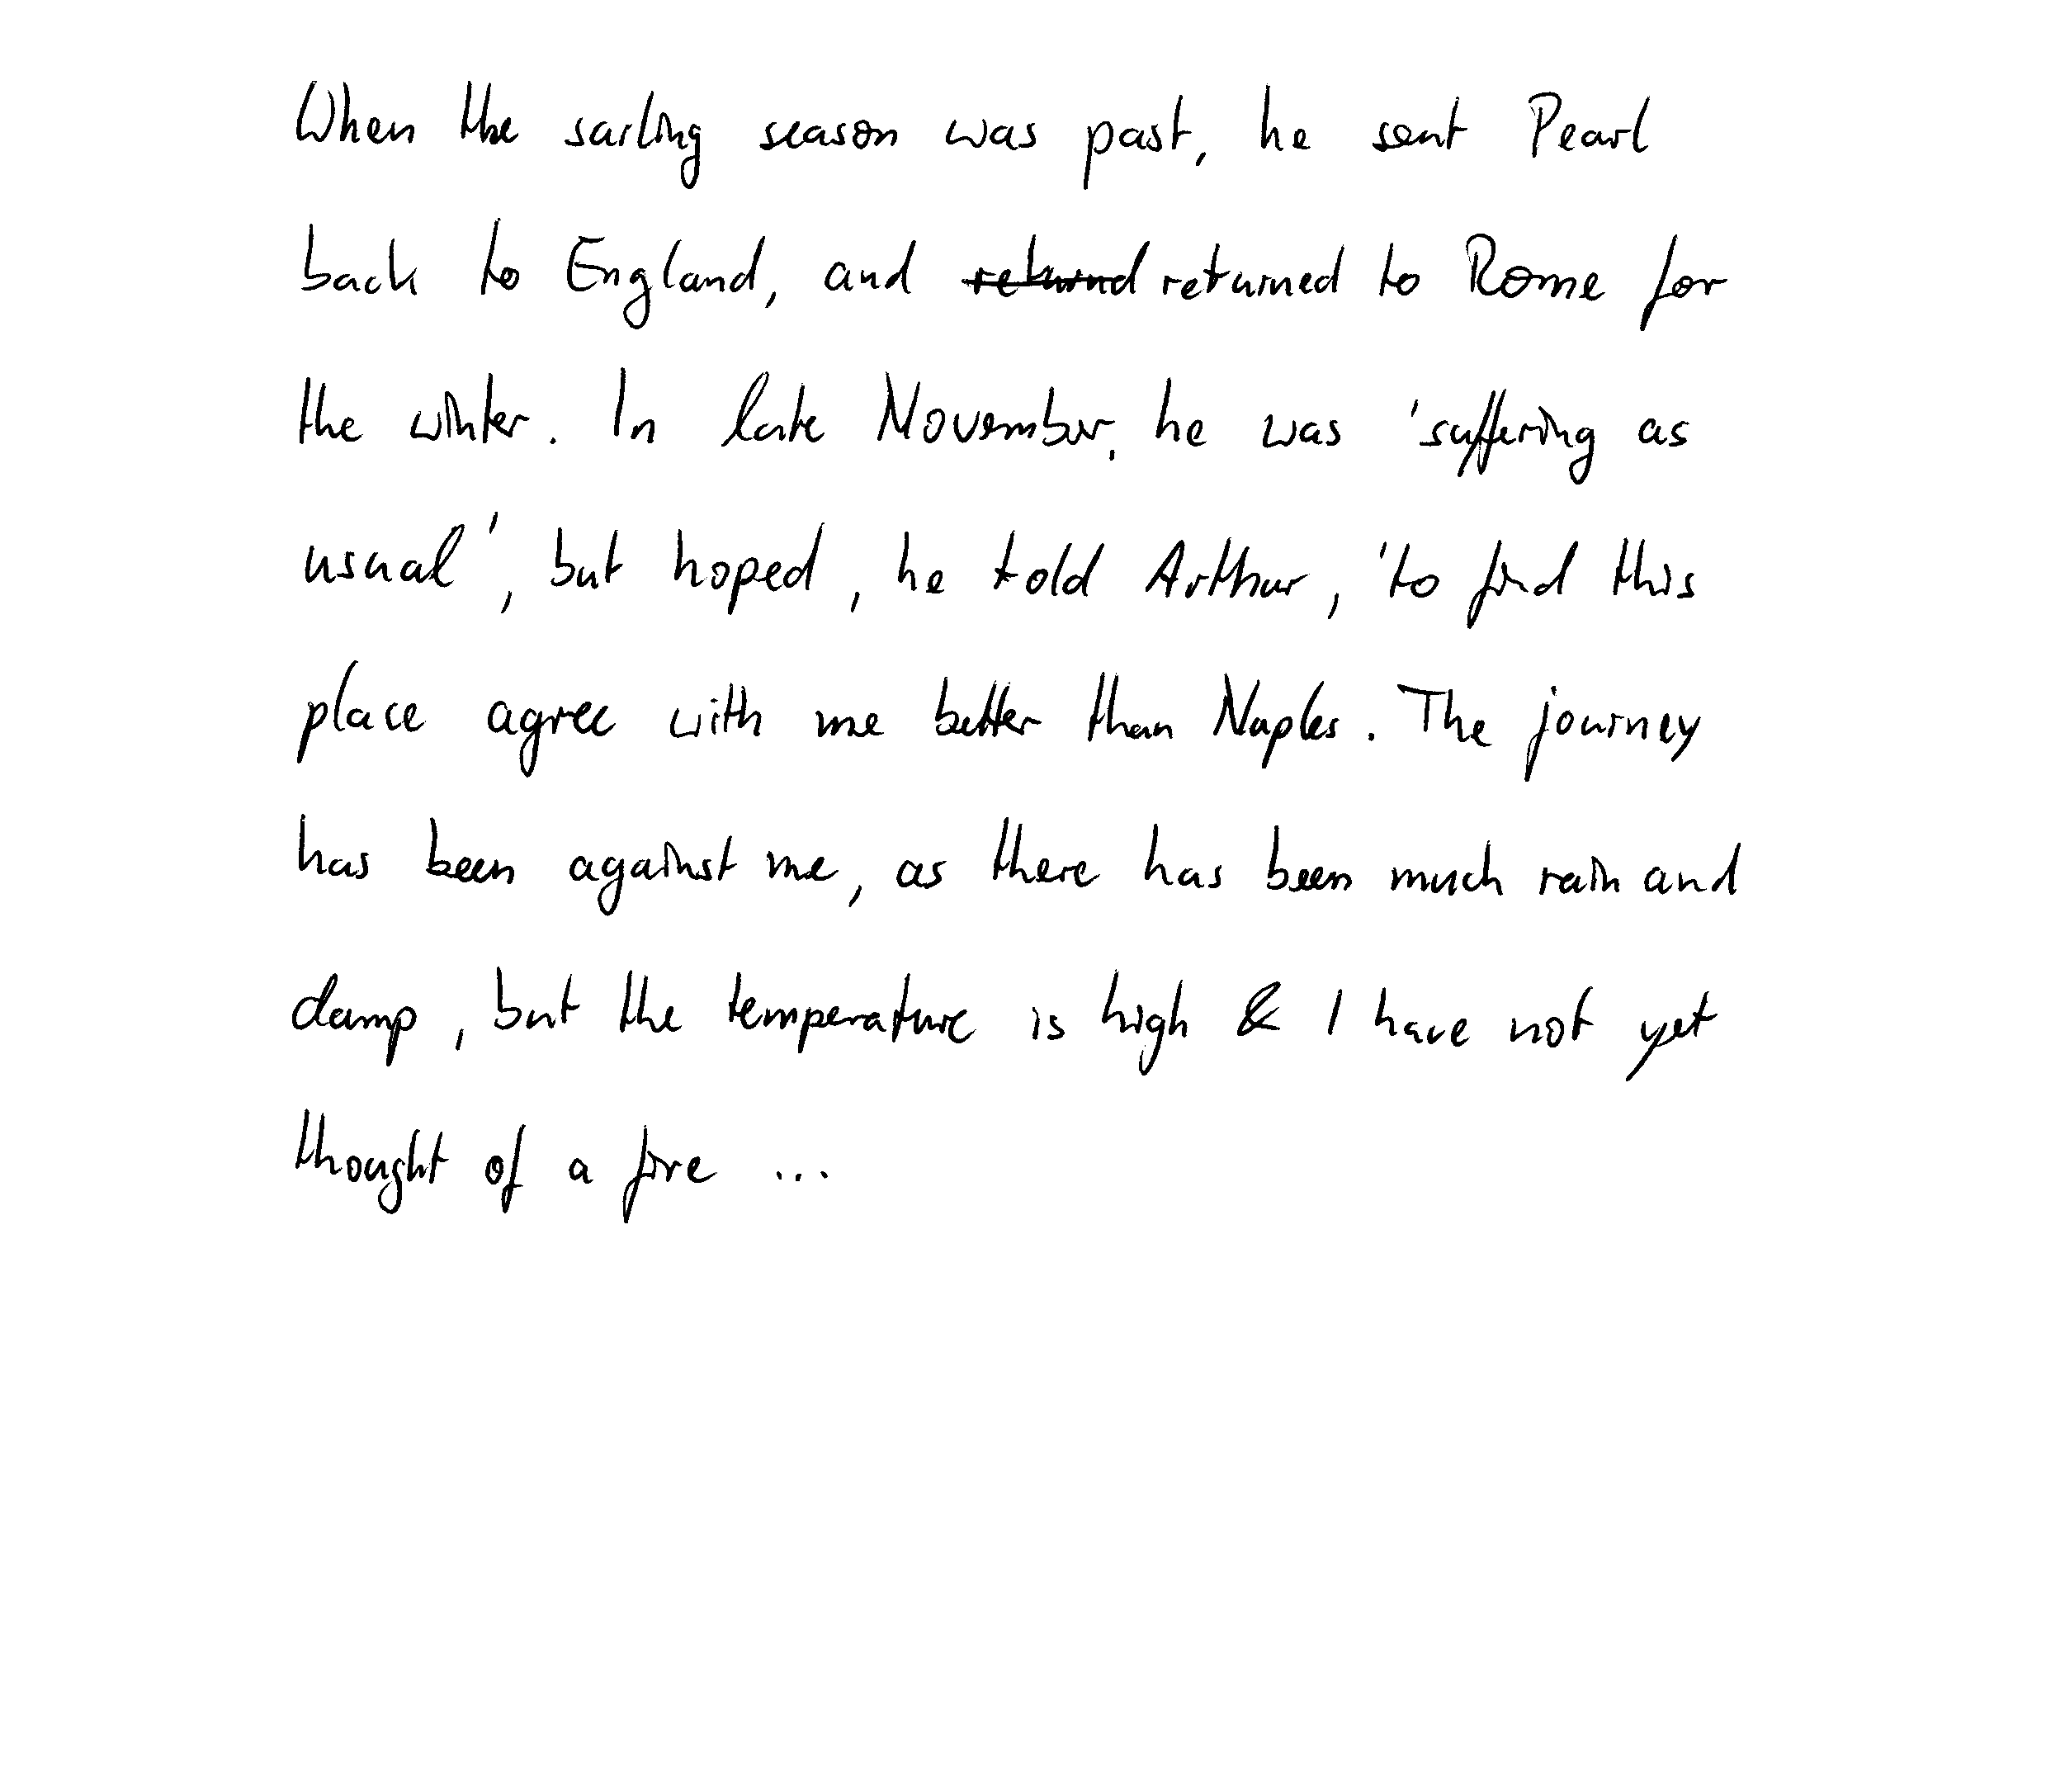 When the sailing season was past, he sent Pearl
back to England, and returnd returned to Rome for
the winter. In late November, he was 'suffering as
usual', but hoped, he told Arthur, 'to find this
place agree with me better than Naples. The journey
has been against me, as there has been much rain and
damp, but the temperature is high & I have not yet
thought of a fire ...